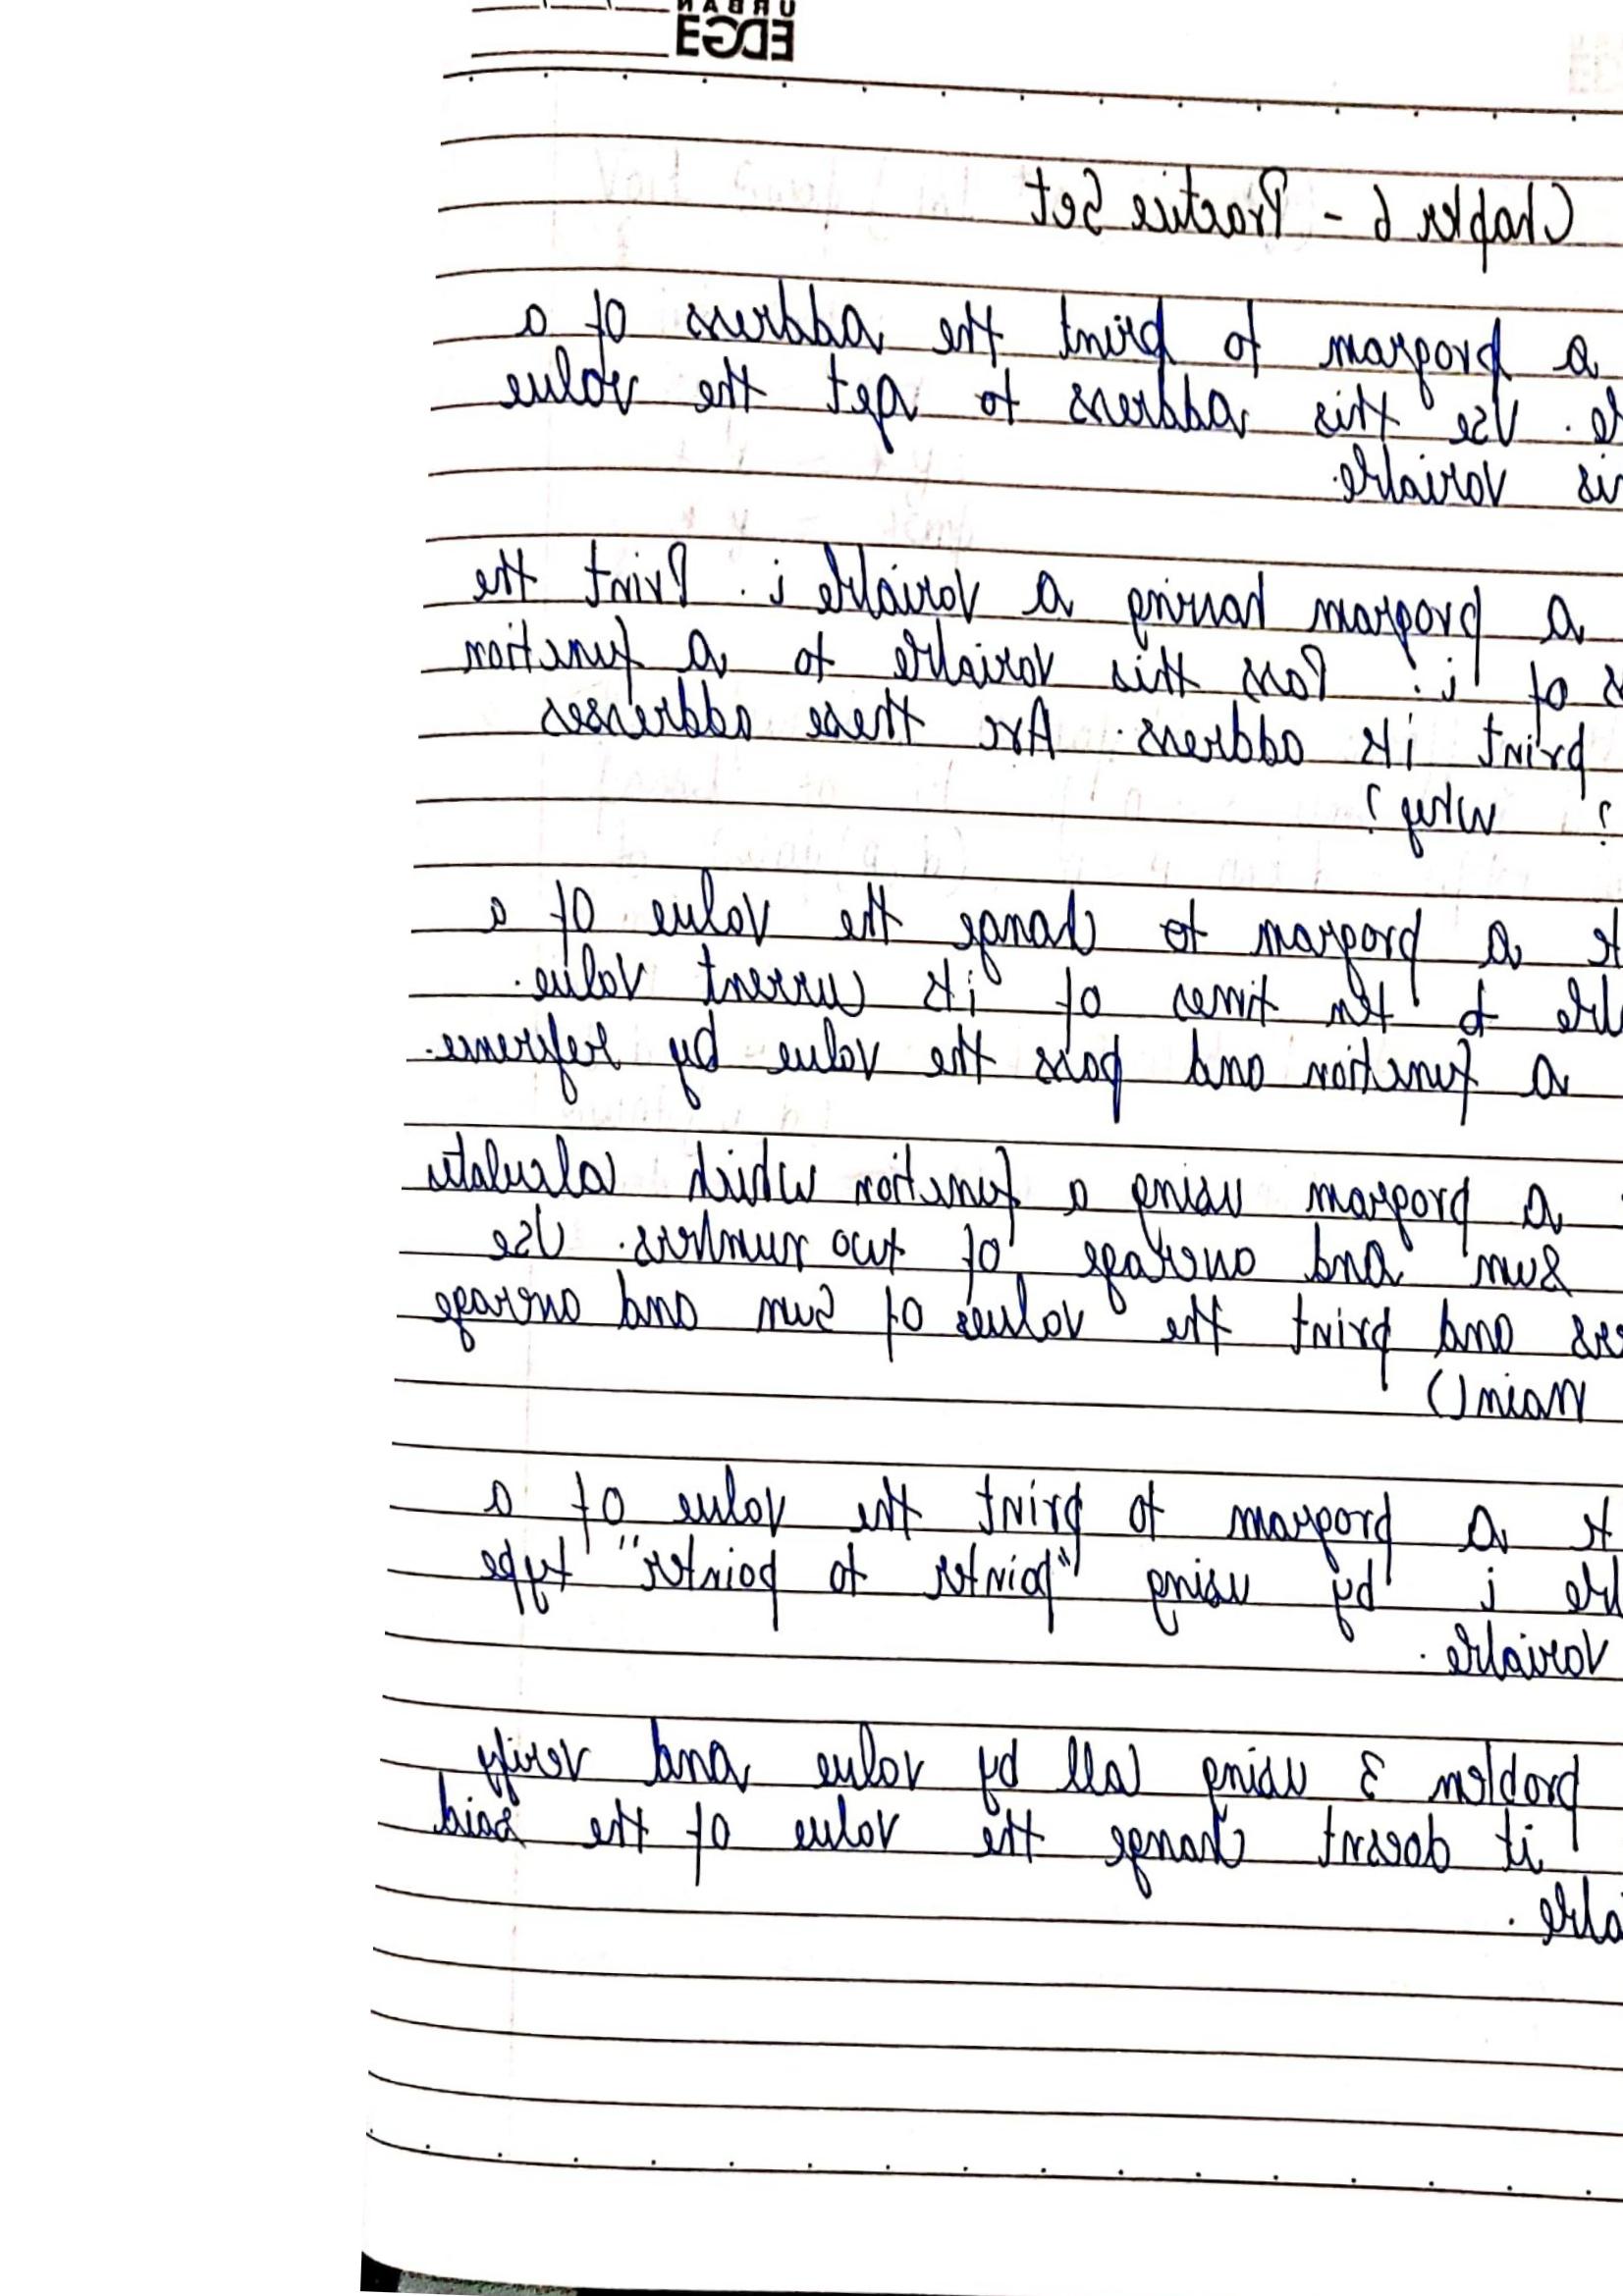 URBAN
EDGE
Chapter 6 - Practice Set
a program to print the address of a
le. Use this address to get the value
is variable.
a program having a variable i. Print the
s of i. Pass this variable to a function
print its address. Are these addresses
? Why?
te a program to change the value of a
ble to ten times of its current value.
a function and pass the value by reference.
a program using a function which calculates
sum and average of two numbers. Use
ers and print the values of sum and average
main()
te a program to print the value of a
ble i by using "pointer to pointer" type
variable.
problem 3 using call by value and verify
it doesnt change the value of the said
able.